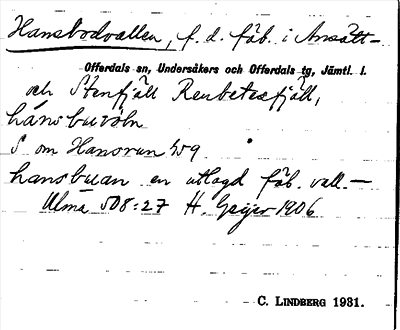 Hansbodvallen, f. d. fäb. i Ansätt-
Offerdals sn, Undersåkers och Offerdals tg, Jämtl. l.
och Stenfjäll Renbetesfjäll,
hansbuvoln
S. om Hansrun 459
hansbuan en utlagd fäb. vall.—
Ulma 508:27 H. Geijer 1906
C. LINDBERG 1931.